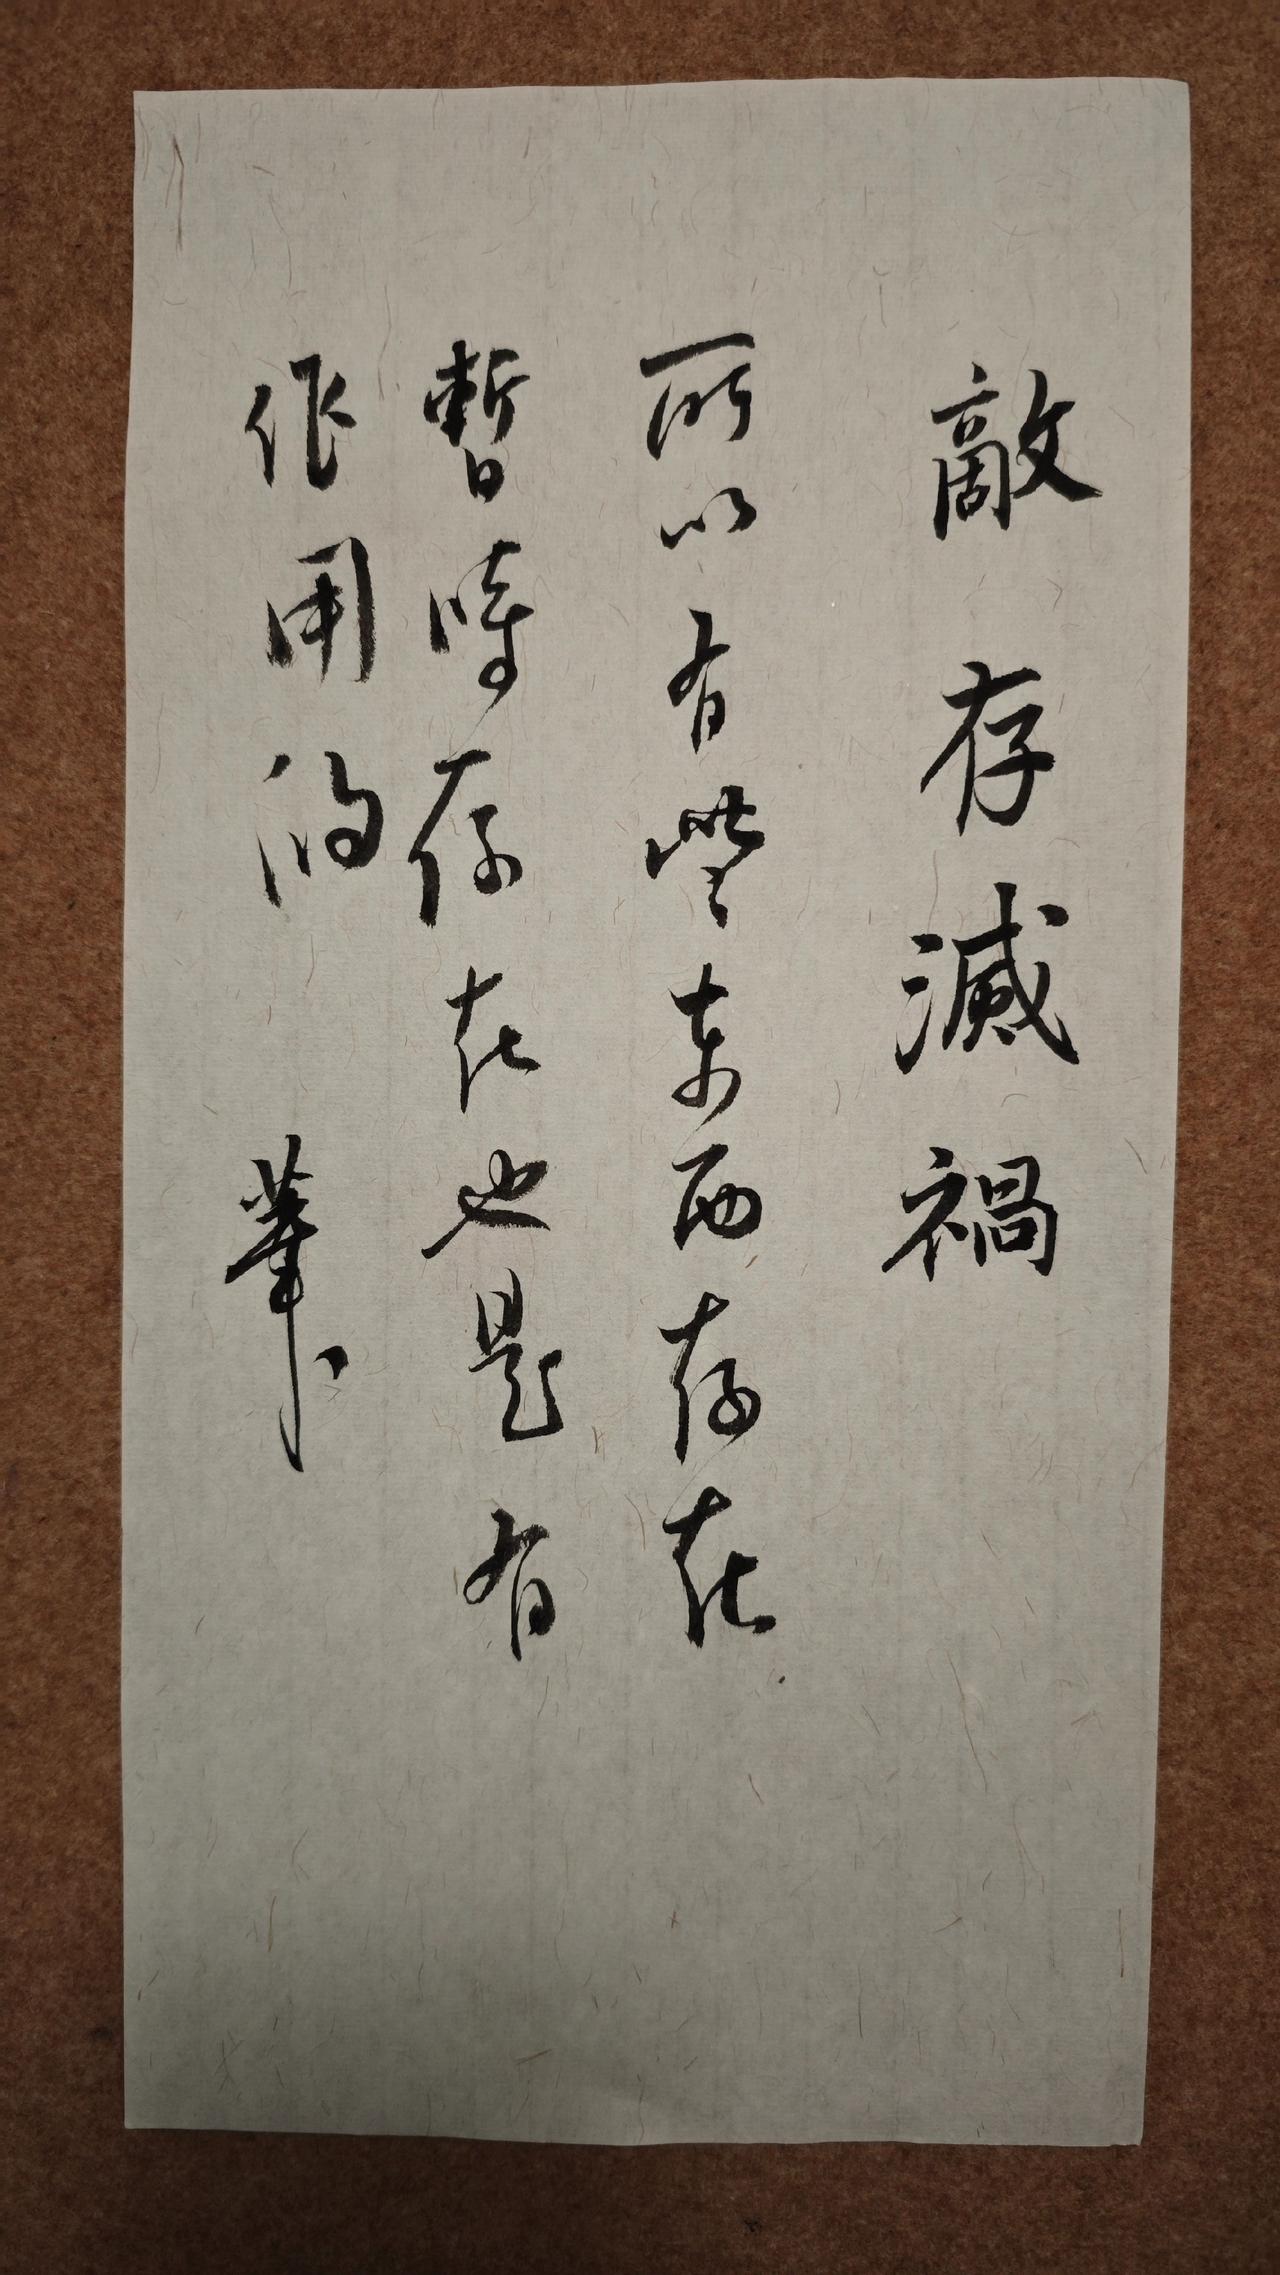 敵存滅禍
所以有些东西存在
暫時存在也是有
作用的